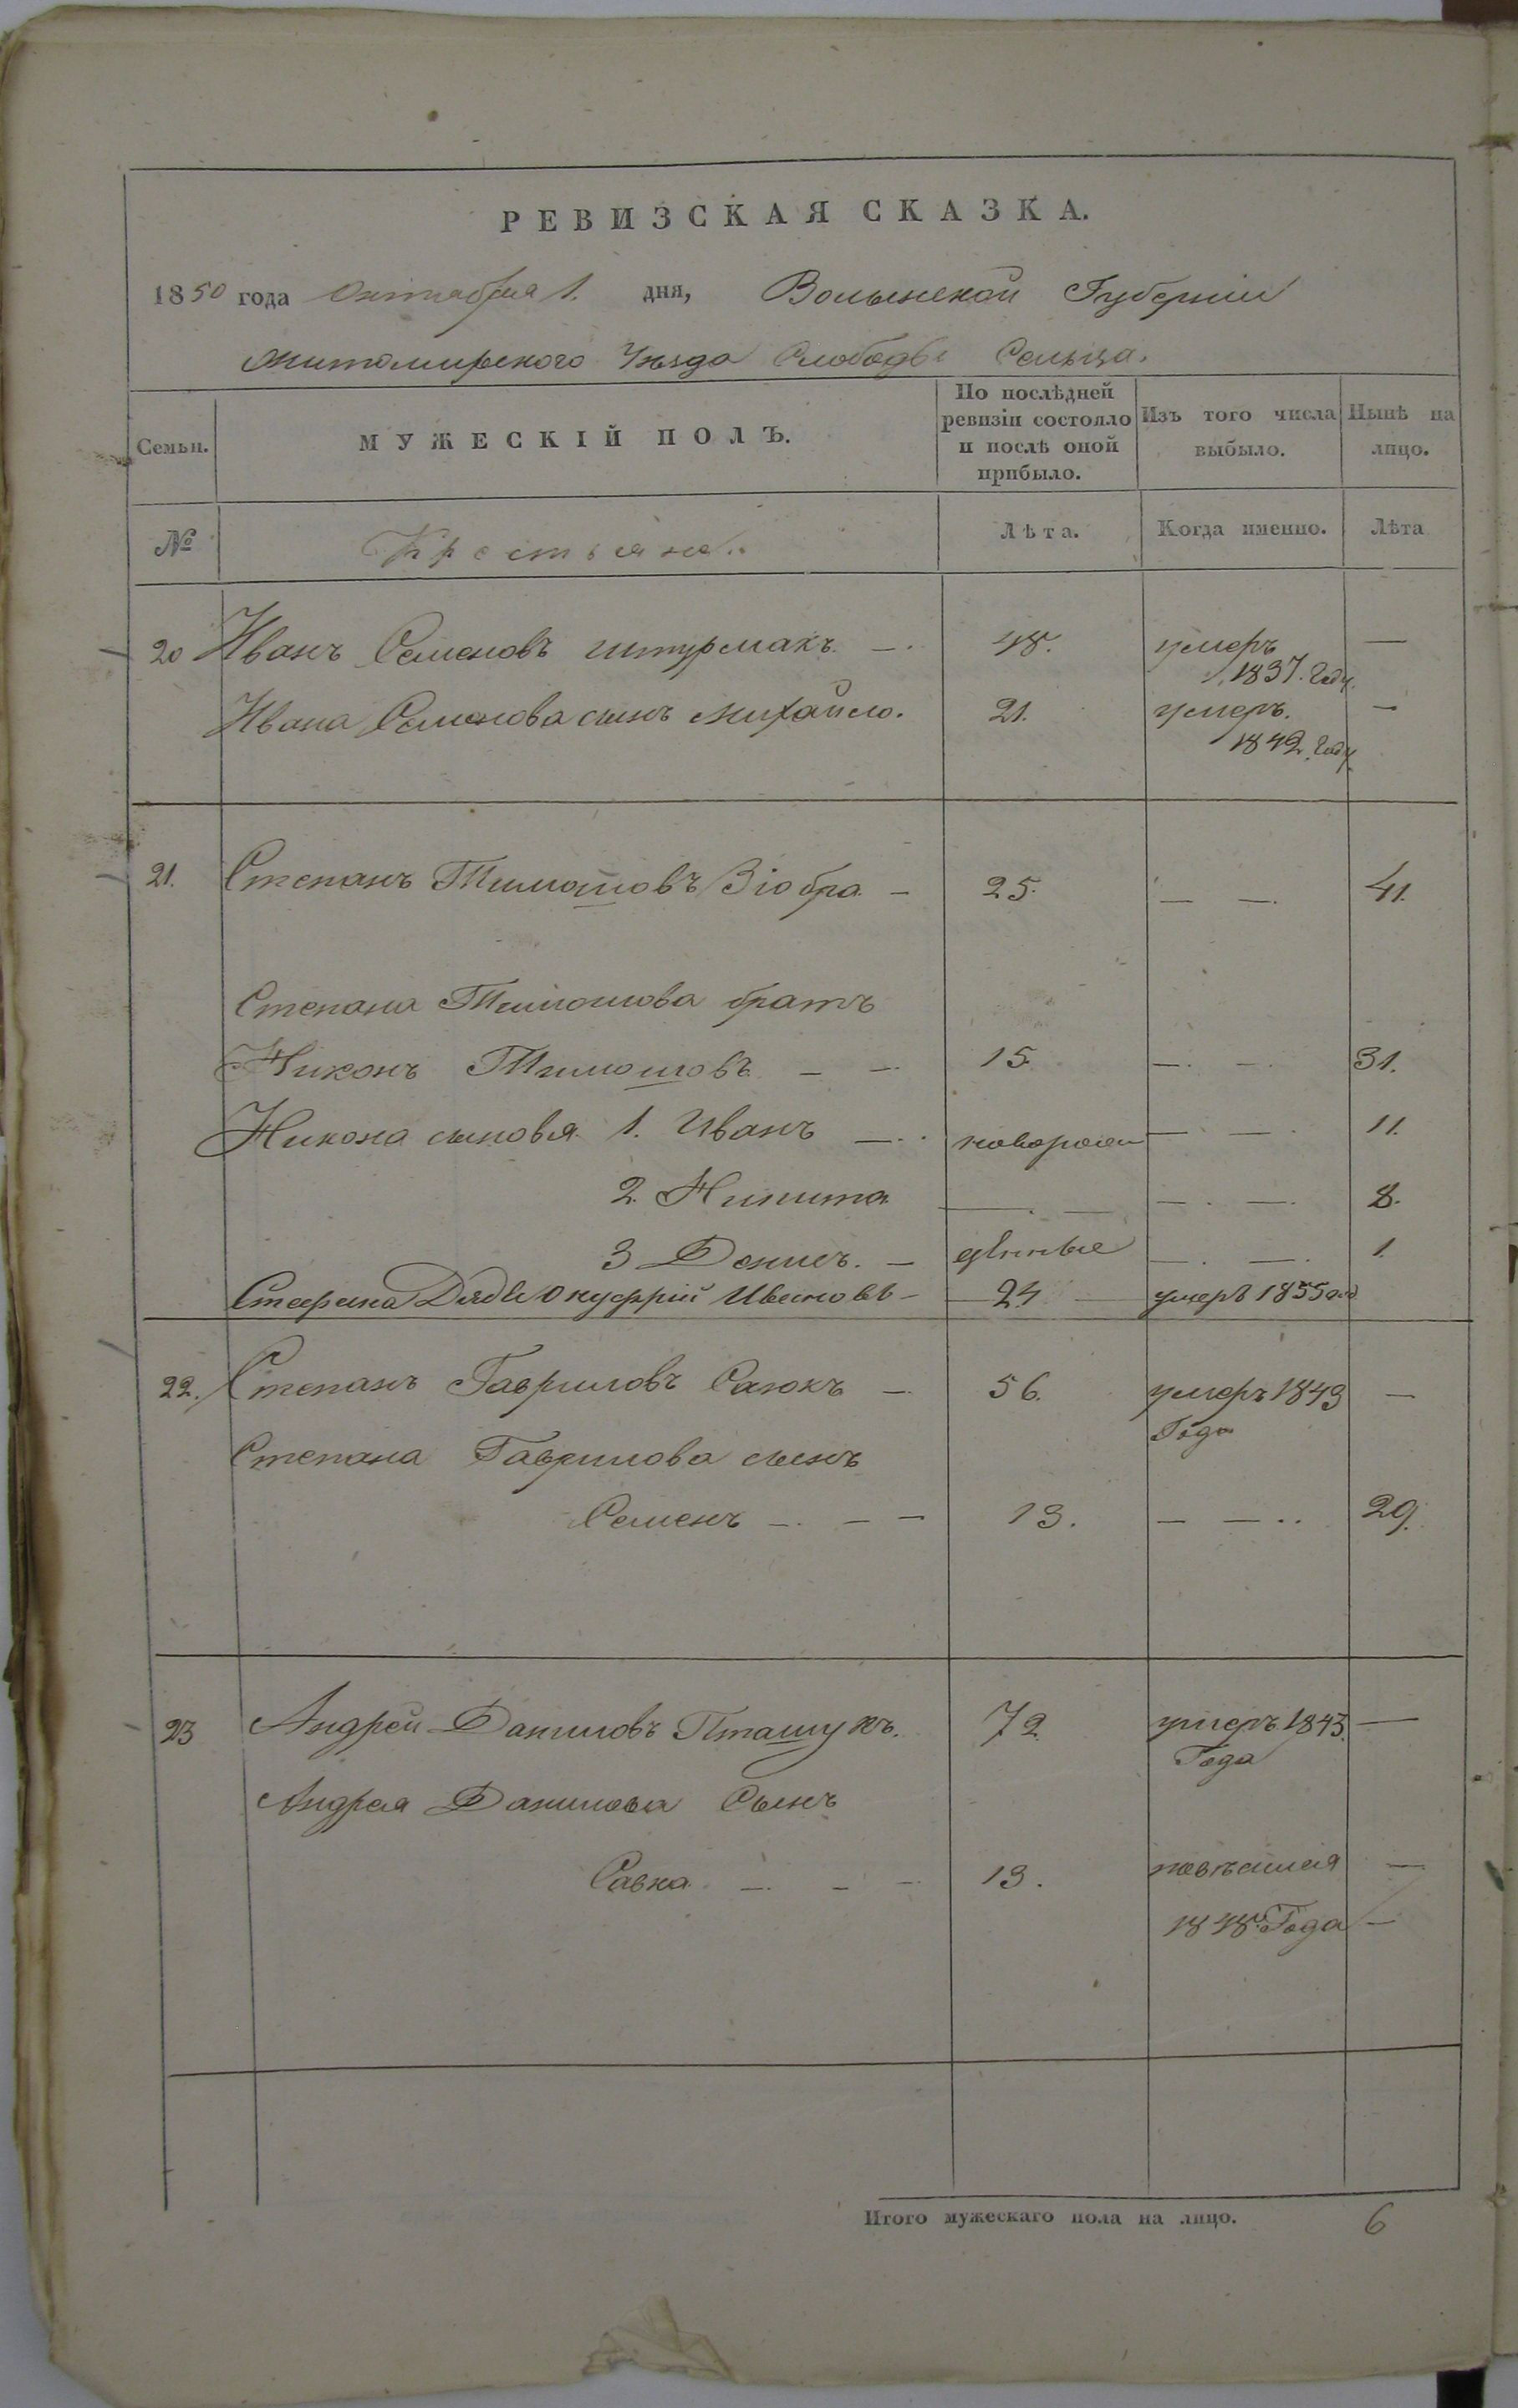 РЕВИЗСКАЯ СКАЗКА.
1850 года Октября 1. дня, Волынской Губерніи
Житомирского Уѣзда Слободы Сельца.
Семьи. МУЖЕСКІЙ ПОЛЪ. По послѣдней ревизіи состояло и послѣ оной прибыло. Изъ того числа выбыло. Нынѣ на лицо.
№ Крестьяне. Лѣта. Когда именно. Лѣта
20 Иванъ Семеновъ Штурмакъ — 48. умеръ 1837. Году. —
Ивана Семенова сынъ Михайло. 21. умеръ. 1842. Году —
21. Степанъ Тимошовъ — 25. — —. 41.
Степана Тимошова братъ
Никонъ Тимошовъ — — 15. —. —. 31.
Никона сыновя 1. Иванъ — новорож — — 11.
2. Никита — . — — . —. 8.
3 Денисъ. — денные — . —. 1.
Стефана Дядя Онуфрій Ивановъ — 24 умеръ 1835 год
22. Степанъ Гавриловъ Саюкъ — 56. умеръ 1843 Года —
Степана Гаврилова сынъ
Семенъ —. — — 13. — — .. 29.
23 Андрей Даниловъ Пташукъ. 72. умеръ 1843. Года —
Андрея Данилова Сынъ
Савка —. — — 13. повѣсился —
1848 Года —
Итого мужескаго пола на лицо. 6